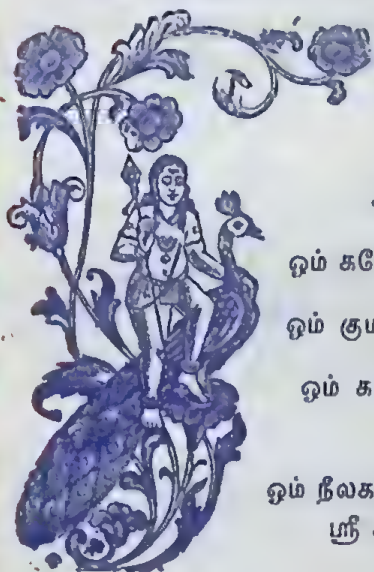 ஓம் கணே
ஓம் கும
ஓம் க
ஓம் நீலக
ஸ்ரீ